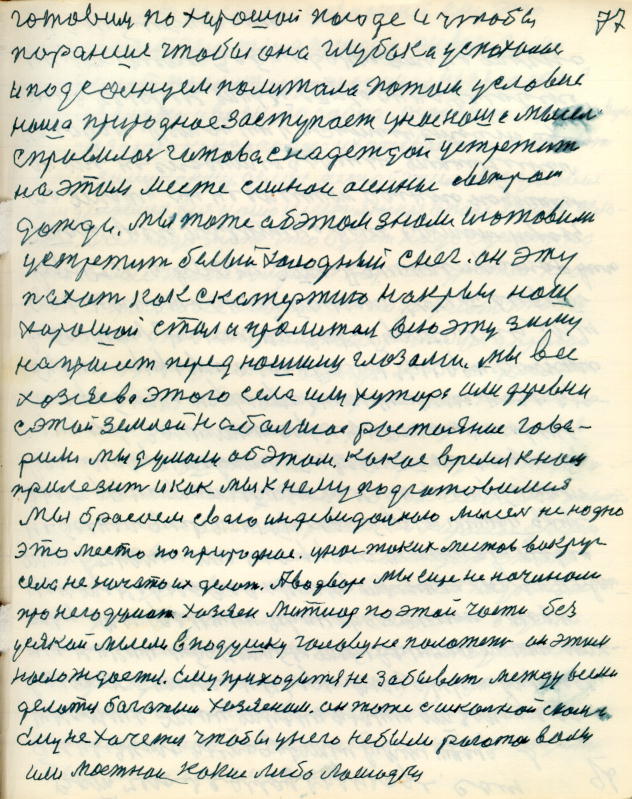 готовим по харошой погоде и чтобы 77
пораньше чтобы она глубака успохоно
и под солнцем политала потом условие
наша природное заступает у нас наше мысел
справилов готова с надеждой устретит
на этим месте сильнои осенни
дожди. мы тоже об этом знали и готовили
устретит белый холодный снег. он эту
пахат как скатертию накрыл наш
харошой стал и пролитал всю эту зиму
напролет перед нашими глозами. мы все
хозяева этого села или хутора или деревни
с этой землей на балшое ростояние гова-
рили мы думали об этом. какое время к нам
прилезит и как мы к нему подготовимся
Мы бросаем сваго индевидолною мысел не на одно
это место по природное. у нас таких местов вокруг
села не начато их делат. А во дворе мы еще не начинали
про него думат хозяен Митиас по этой части без
усякой мысли в подушку галову не положет он этим
наслождаетя. Ему приходится не забыват между всеми
делоти багатым хозяеном. он тоже с школной скамьи
Ему не хачетя чтобы у него не были рогота валы
или мостнои какие либо лошодки